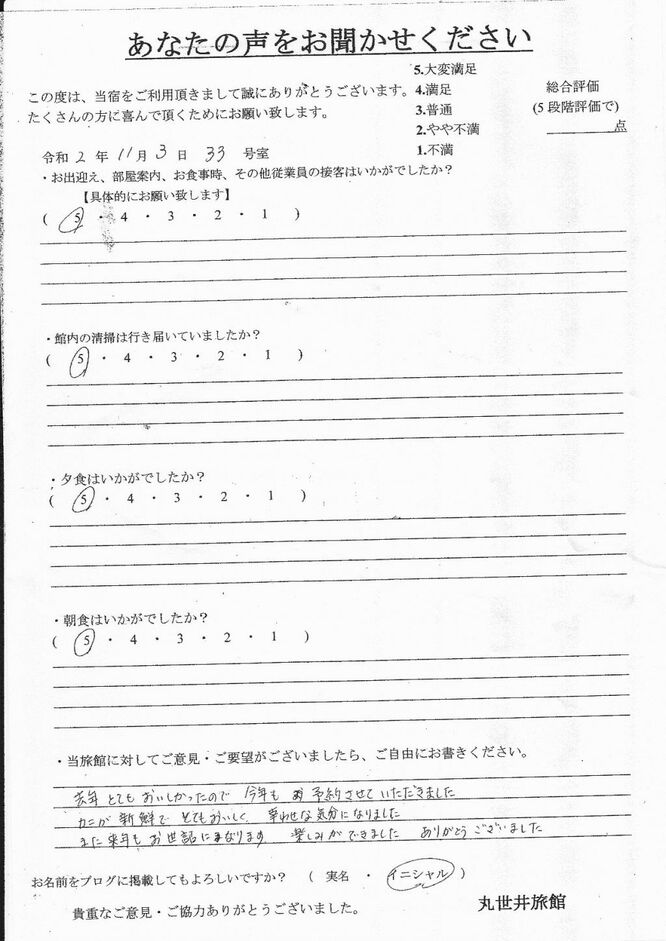 あなたの声をお聞かせください
この度は、当宿をご利用頂きまして誠にありがとうございます。
たくさんの方に喜んで頂くためにお願い致します。
5.大変満足
4.満足
3.普通
2.やや不満
1.不満
総合評価
(5段階評価で)
点
令和 2 年 11 月 3 日 33 号室
・お出迎え、部屋案内、お食事時、その他従業員の接客はいかがでしたか?
【具体的にお願い致します】
( 5 ・ 4 ・ 3 ・ 2 ・ 1 )
・館内の清掃は行き届いていましたか?
( 5 ・ 4 ・ 3 ・ 2 ・ 1 )
・夕食はいかがでしたか?
( 5 ・ 4 ・ 3 ・ 2 ・ 1 )
・朝食はいかがでしたか?
( 5 ・ 4 ・ 3 ・ 2 ・ 1 )
・当旅館に対してご意見・ご要望がございましたら、ご自由にお書きください。
去年とてもおいしかったので 今年も お予約させていただきました
カニが新鮮で とてもおいしく 幸わせな気分になりました
また来年もお世話になります 楽しみができました ありがとうございました
お名前をブログに掲載してもよろしいですか? ( 実名 ・ イニシャル )
貴重なご意見・ご協力ありがとうございました。
丸世井旅館